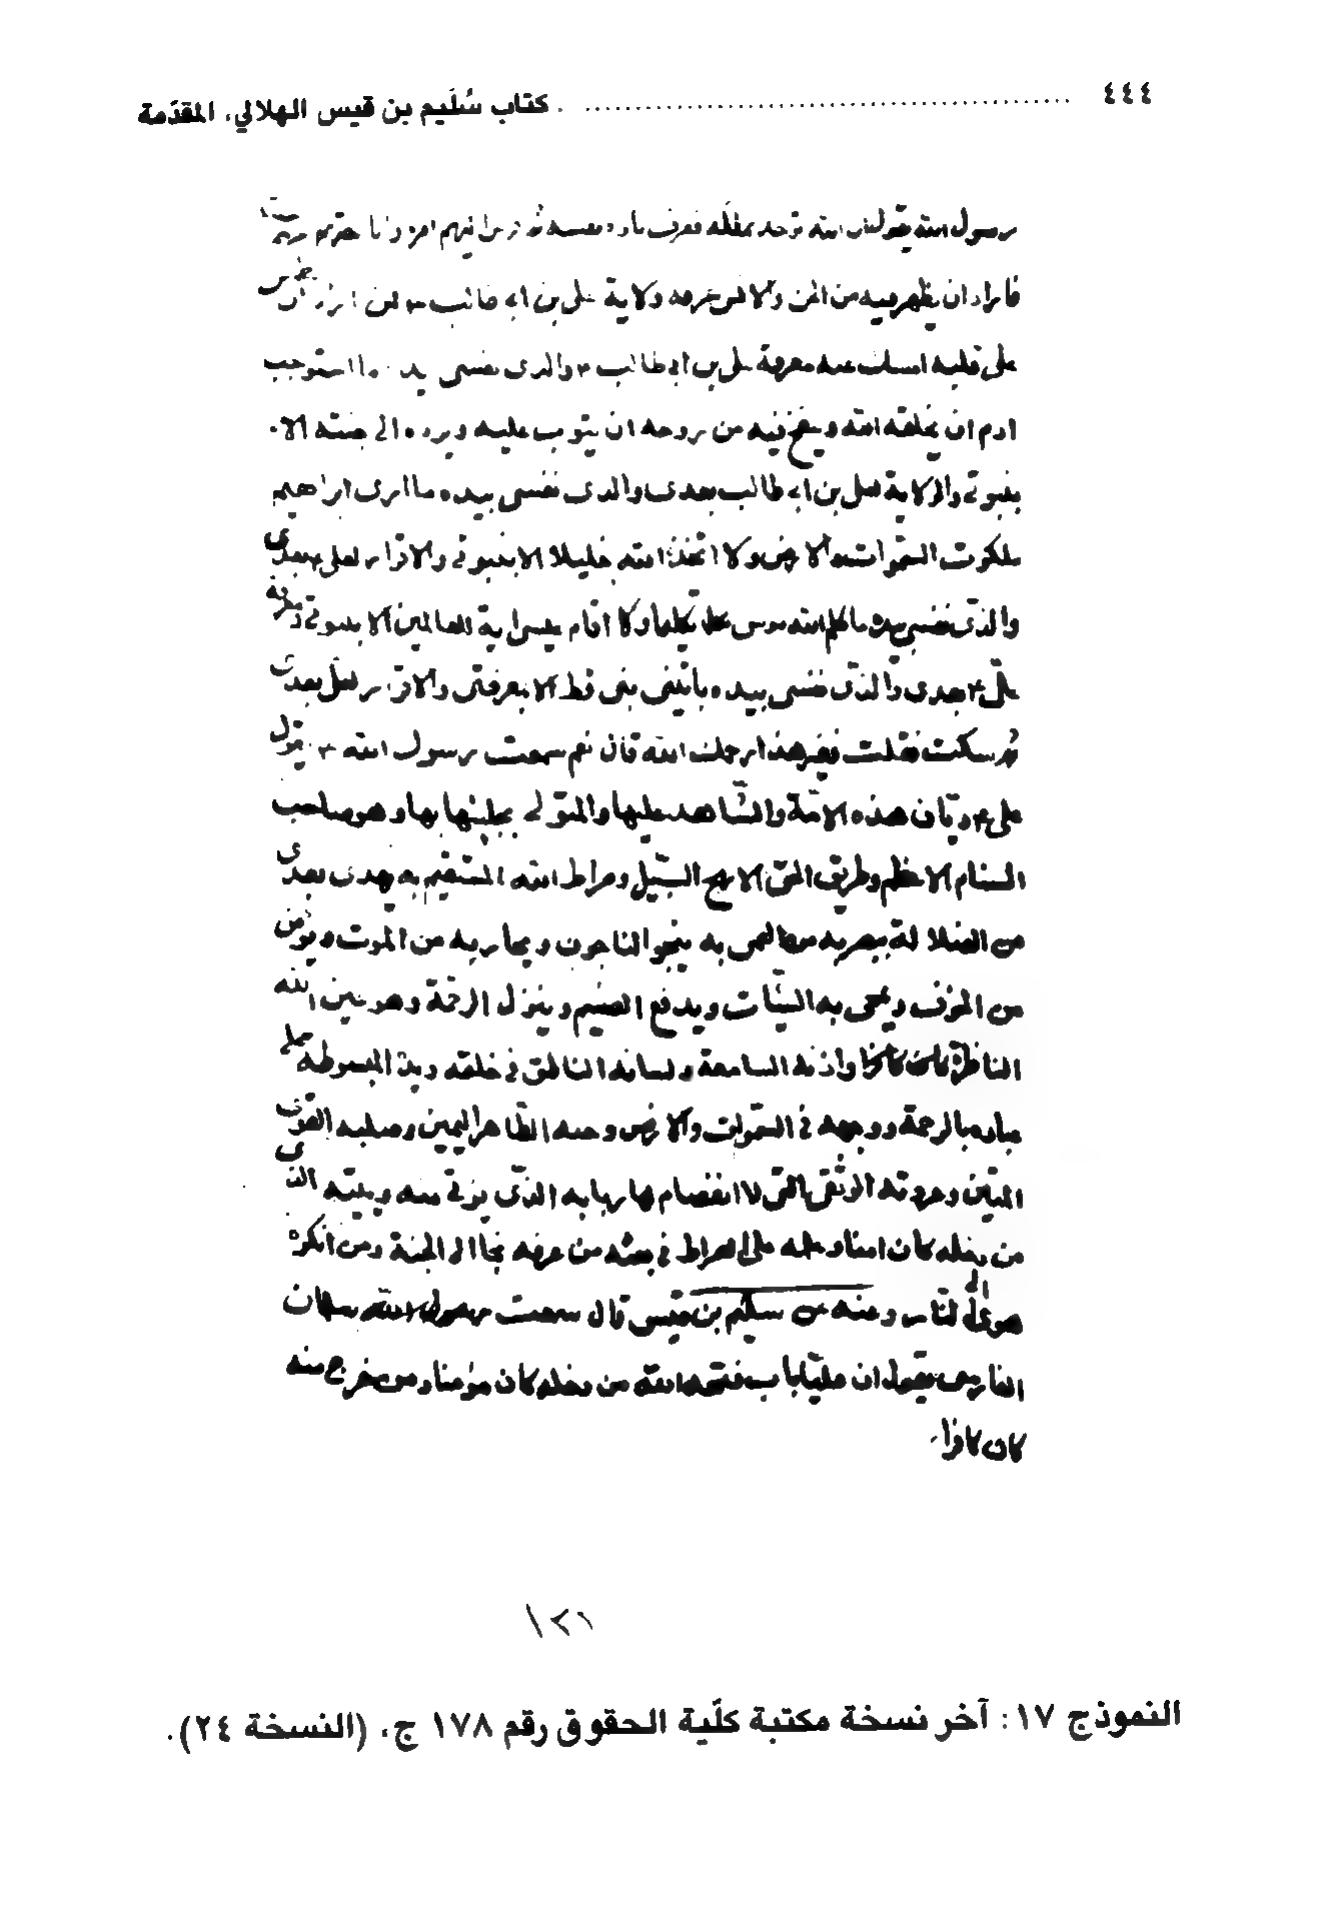 ٤٤٤ ........................................ كتاب سُلَيم بن قيس الهلالي، المقدّمة
رسول الله يقول ان الله توحد بملكه فعرف
فاراد ان يظهر من الجن والانس معرفه ولاية على بن ابى طالب
على قلبه امسك عنه معرفة على بن ابى طالب ٤ والذى نفسى بيده ما استوجب
ادم ان يخلقه الله وينفخ فيه من روحه ان يتوب عليه ويرده الى جنته الا
بنبوتى والولاية لعلى بن ابى طالب بعدى والذى نفسى بيده ما ارى ابراهيم
ملكوت السّموات والارض ولا اتخذ الله خليلا الا بنبوتى والاقرار لعلى ٤ بعدى
والذى نفسى بيده ما كلم الله موسى تكليما ولا اقام عيسى اية للعالمين الا بنبوتى ومعرفة
علىّ ٤ بعدى والذى نفسى بيده ما تنبّى نبى قط الا بمعرفتى والاقرار لعلى بعدى
ثم سكت فقلت فغير هذا رحمك الله قال نعم سمعت رسول الله يقول
على ٤ ديّان هذه الامّة والشّاهد عليها والمتولى بحلبها وهو صاحب
السنام الاعظم وطريق الحق الابهج السّبيل وصراط الله المستقيم به يهدى بعدى
من الضلالة يبصر به من العمى به ينجو الناجون ويجار به من الموت ويؤمن
من الخوف ويمحى به السيّئات ويدفع الضيم وينزل الرحمة وهو عين الله
الناظرة واذنه السامعة ولسانه الناطق فى خلقه ويده المبسوطة على
عباده بالرحمة ووجهه فى السّموات والارض وجنبه الظاهر اليمين وحبله القوى
المتين وعروته الوثقى التى لا انفصام لها وبابه الذى يؤتى منه وبيته الذى
من دخله كان امنا وعلمه على الصراط فى بعثه من عرفه نجا الى الجنة ومن انكره
هوى الى النّار وعنه عن سليم بن قيس قال سمعت سلمان
الفارسى يقول ان عليّا باب فتحه الله من دخله كان مؤمنا ومن خرج منه
كان كافرا
١٢١
النموذج ١٧: آخر نسخة مكتبة كلّية الحقوق رقم ١٧٨ ج، (النسخة ٢٤).